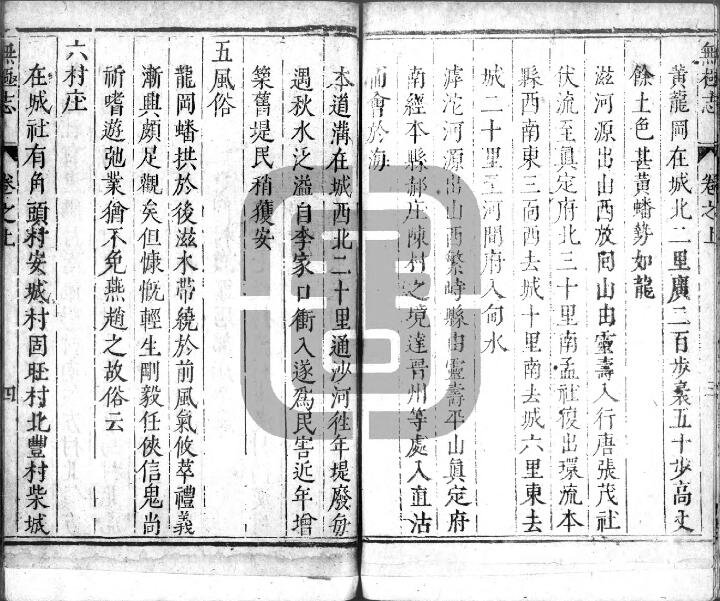 無極志 卷之上 三
黃龍岡在城北二里廣二百步袤五十步高丈
餘土色甚黃蟠勢如龍
滋河源出山西放同山由靈壽入行唐張茂社
伏流至眞定府北三十里南孟社復出環流本
縣西南東三面西去城十里南去城六里東去
城二十里至河間府入旬水
滹沱河源出山西繁峙縣由靈壽平山眞定府
南經本縣郝庄陳村之境達晉州等處入直沽
而會於海
本道溝在城西北二十里通沙河徃年堤廢每
遇秋水泛溢自李家口衝入遂爲民害近年增
築舊堤民稍獲安
五風俗
龍岡蟠拱於後滋水帶繞於前風氣攸萃禮義
漸興頗足觀矣但慷慨輕生剛毅任俠信鬼尚
祈嗜遊弛業猶不免燕趙之故俗云
六村庄
在城社有角頭村安城村固旺村北豐村柴城
無極志 卷之上 四